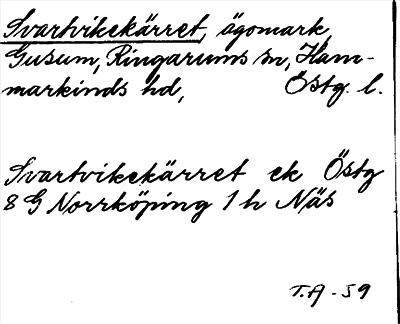 Svartvikekärret, ägomark,
Gusum, Ringarums sn, Ham-
markinds hd, Östg. l.
Svartvikekärret ek Östg
8 G Norrköping 1 h Näs
T.A - 59